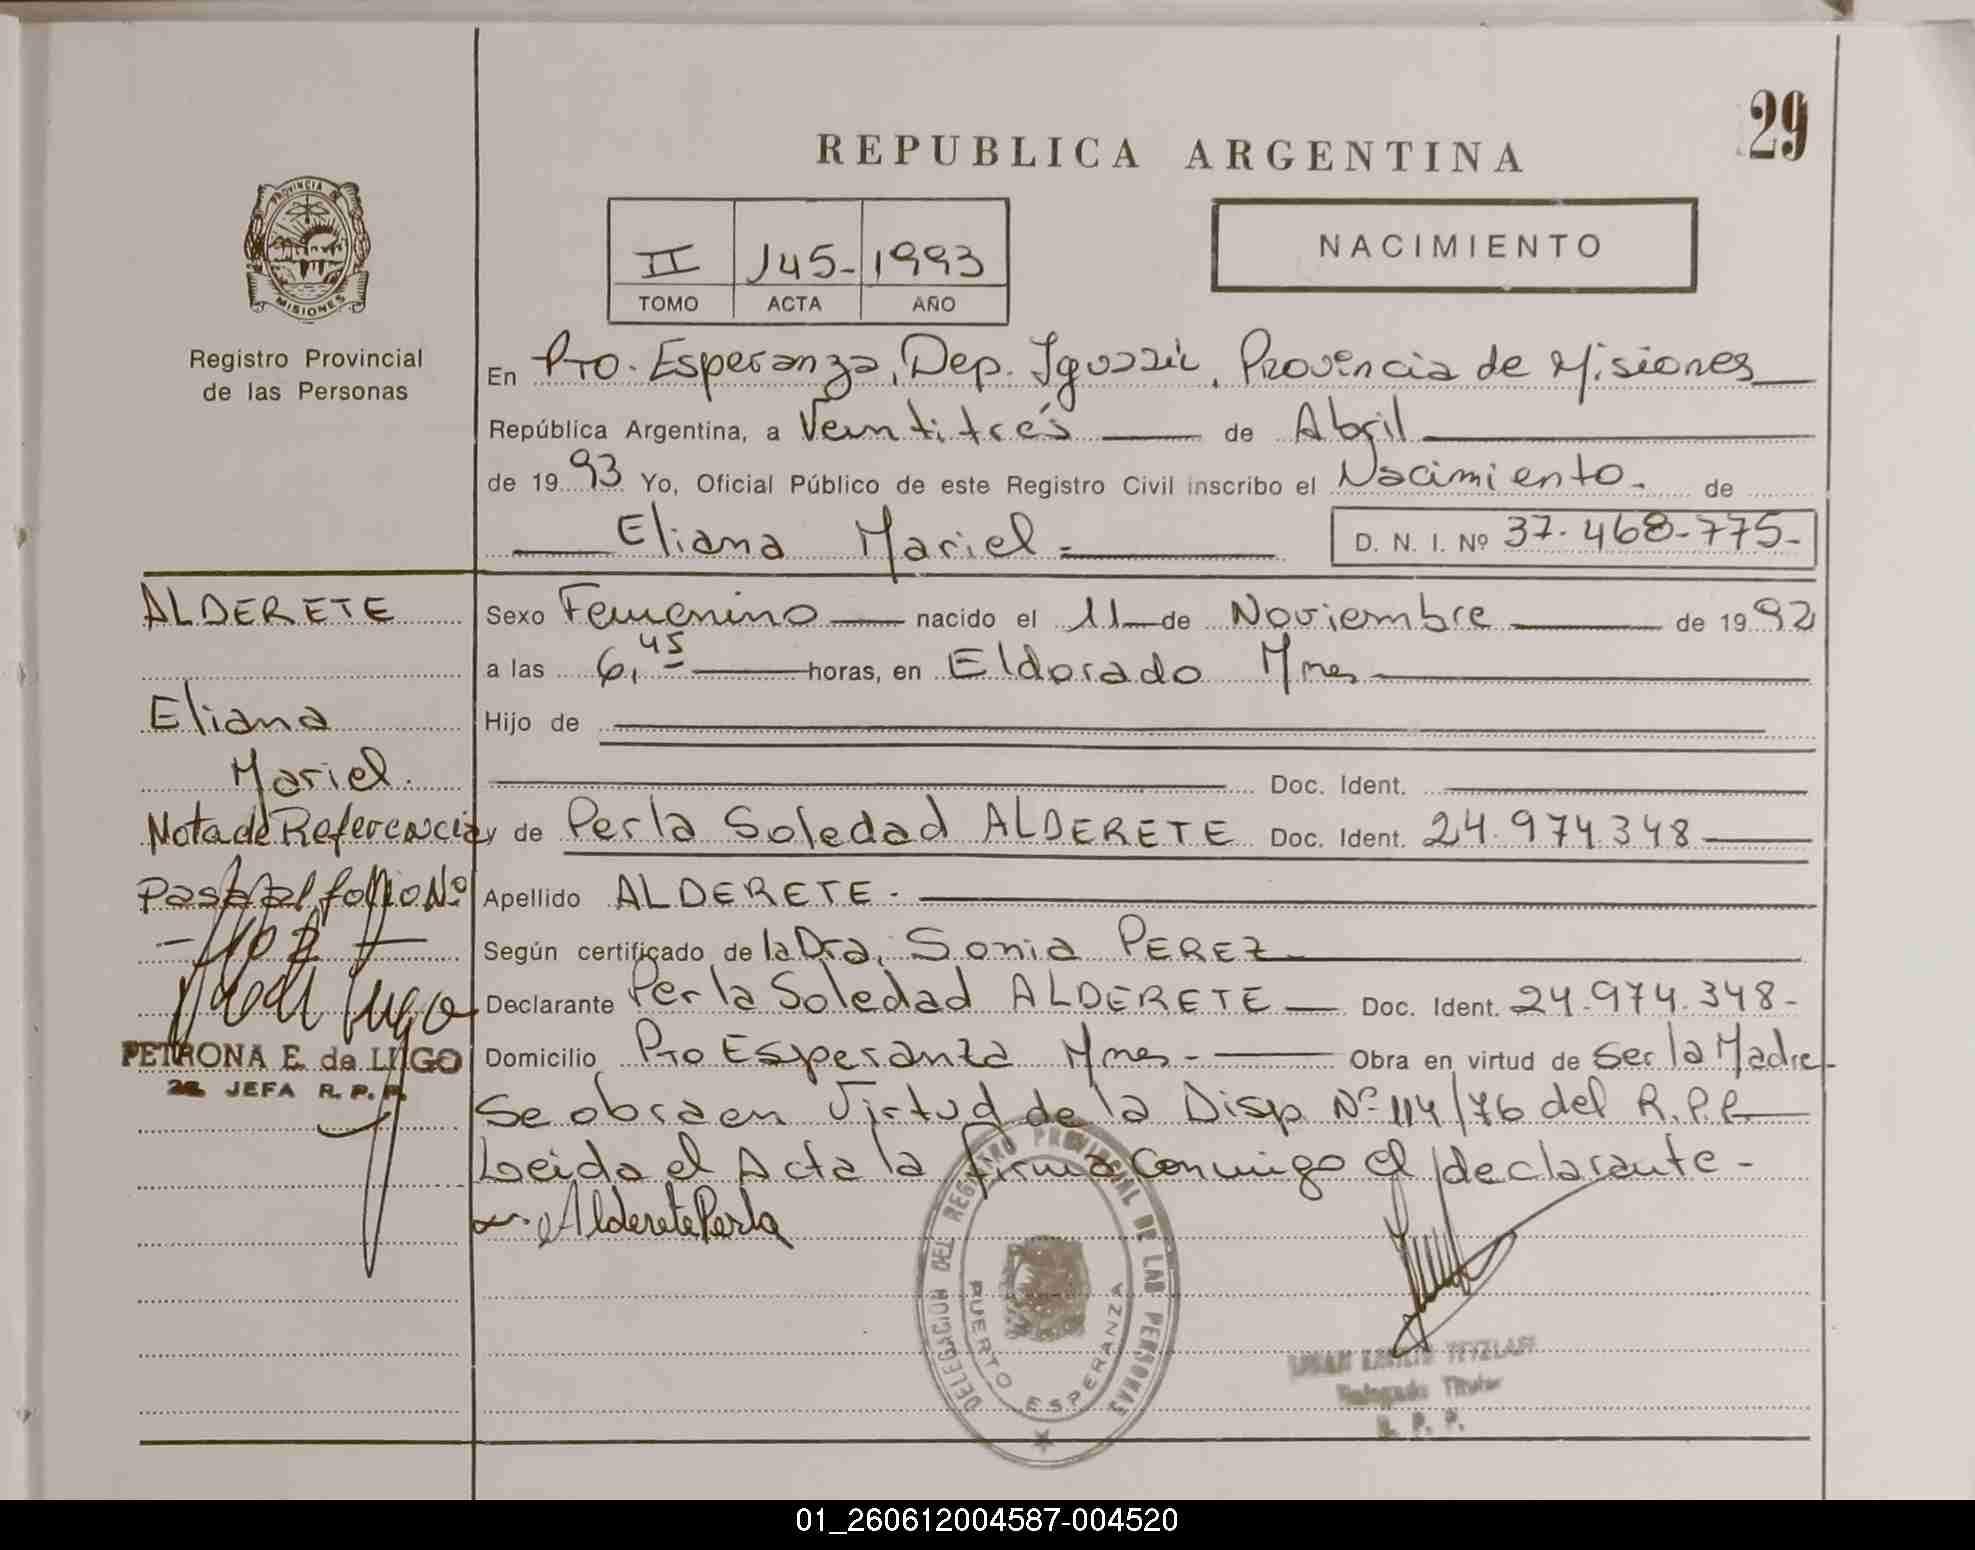 29
REPUBLICA ARGENTINA
PROVINCIA DE
MISIONES
Registro Provincial
de las Personas
II 145- 1993
TOMO ACTA AÑO
NACIMIENTO
En Pto. Esperanza, Dep. Iguazú, Provincia de Misiones
República Argentina, a Veintitrés de Abril
de 1993 Yo, Oficial Público de este Registro Civil inscribo el Nacimiento. de
Eliana Mariel D. N. I. Nº 37.468-775-
ALDERETE
Eliana
Mariel.
Nota de Referencia
Pasa al folio Nº
- 102 -
PETRONA E. de LUGO
JEFA R. P. P.
Sexo Femenino nacido el 11 de Noviembre de 1992
a las 6,45 horas, en Eldorado Mnes
Hijo de
Doc. Ident.
y de Perla Soledad ALDERETE Doc. Ident. 24.974.348
Apellido ALDERETE.
Según certificado de la Dra. Sonia PEREZ
Declarante Perla Soledad ALDERETE Doc. Ident. 24.974.348-
Domicilio Pto Esperanza Mnes- Obra en virtud de Ser la Madre-
Se obra en Virtud de la Disp Nº 114/76 del R.P.P.
Leida el Acta la firma conmigo el declarante-
Alderete Perla
DELEGACION DEL REGISTRO PROVINCIAL DE LAS PERSONAS
PUERTO ESPERANZA
Delegado Titular
R. P. P.
01_260612004587-004520